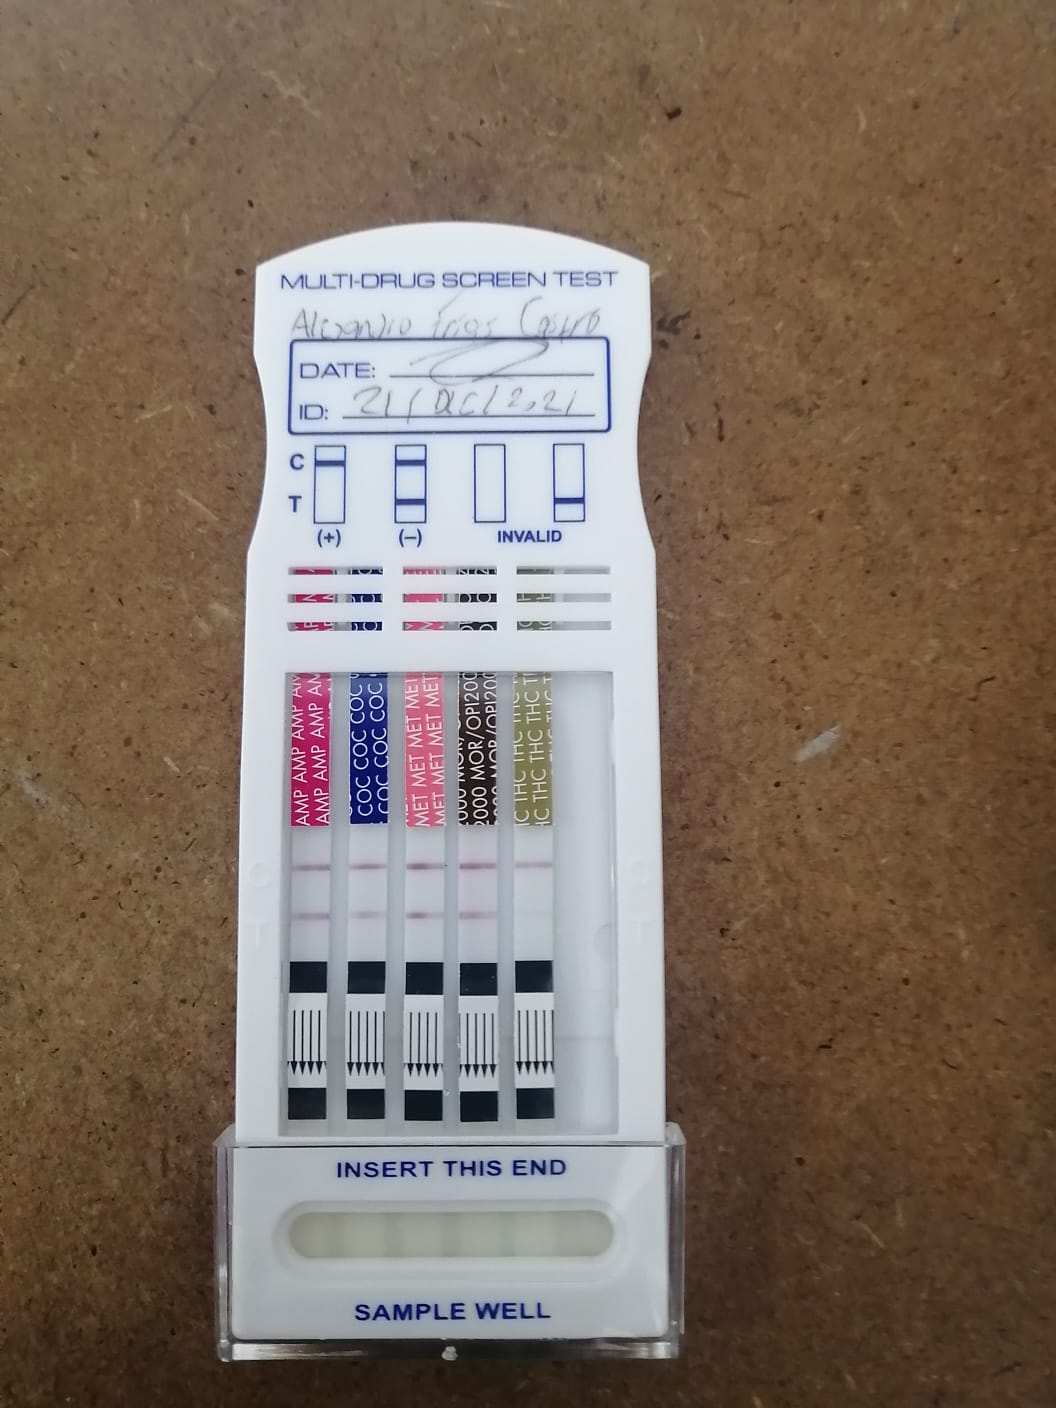 MULTI-DRUG SCREEN TEST
Alejandro Frias Castro
DATE:
ID: 21/DIC/2021
C
T
(+) (−) INVALID
AMP AMP AMP AM
AMP AMP AMP AM
COC COC COC
COC COC COC
MET MET MET MET
MET MET MET MET
2000 MOR/OPI200
THC THC THC
HC THC THC THC
C
T
INSERT THIS END
SAMPLE WELL